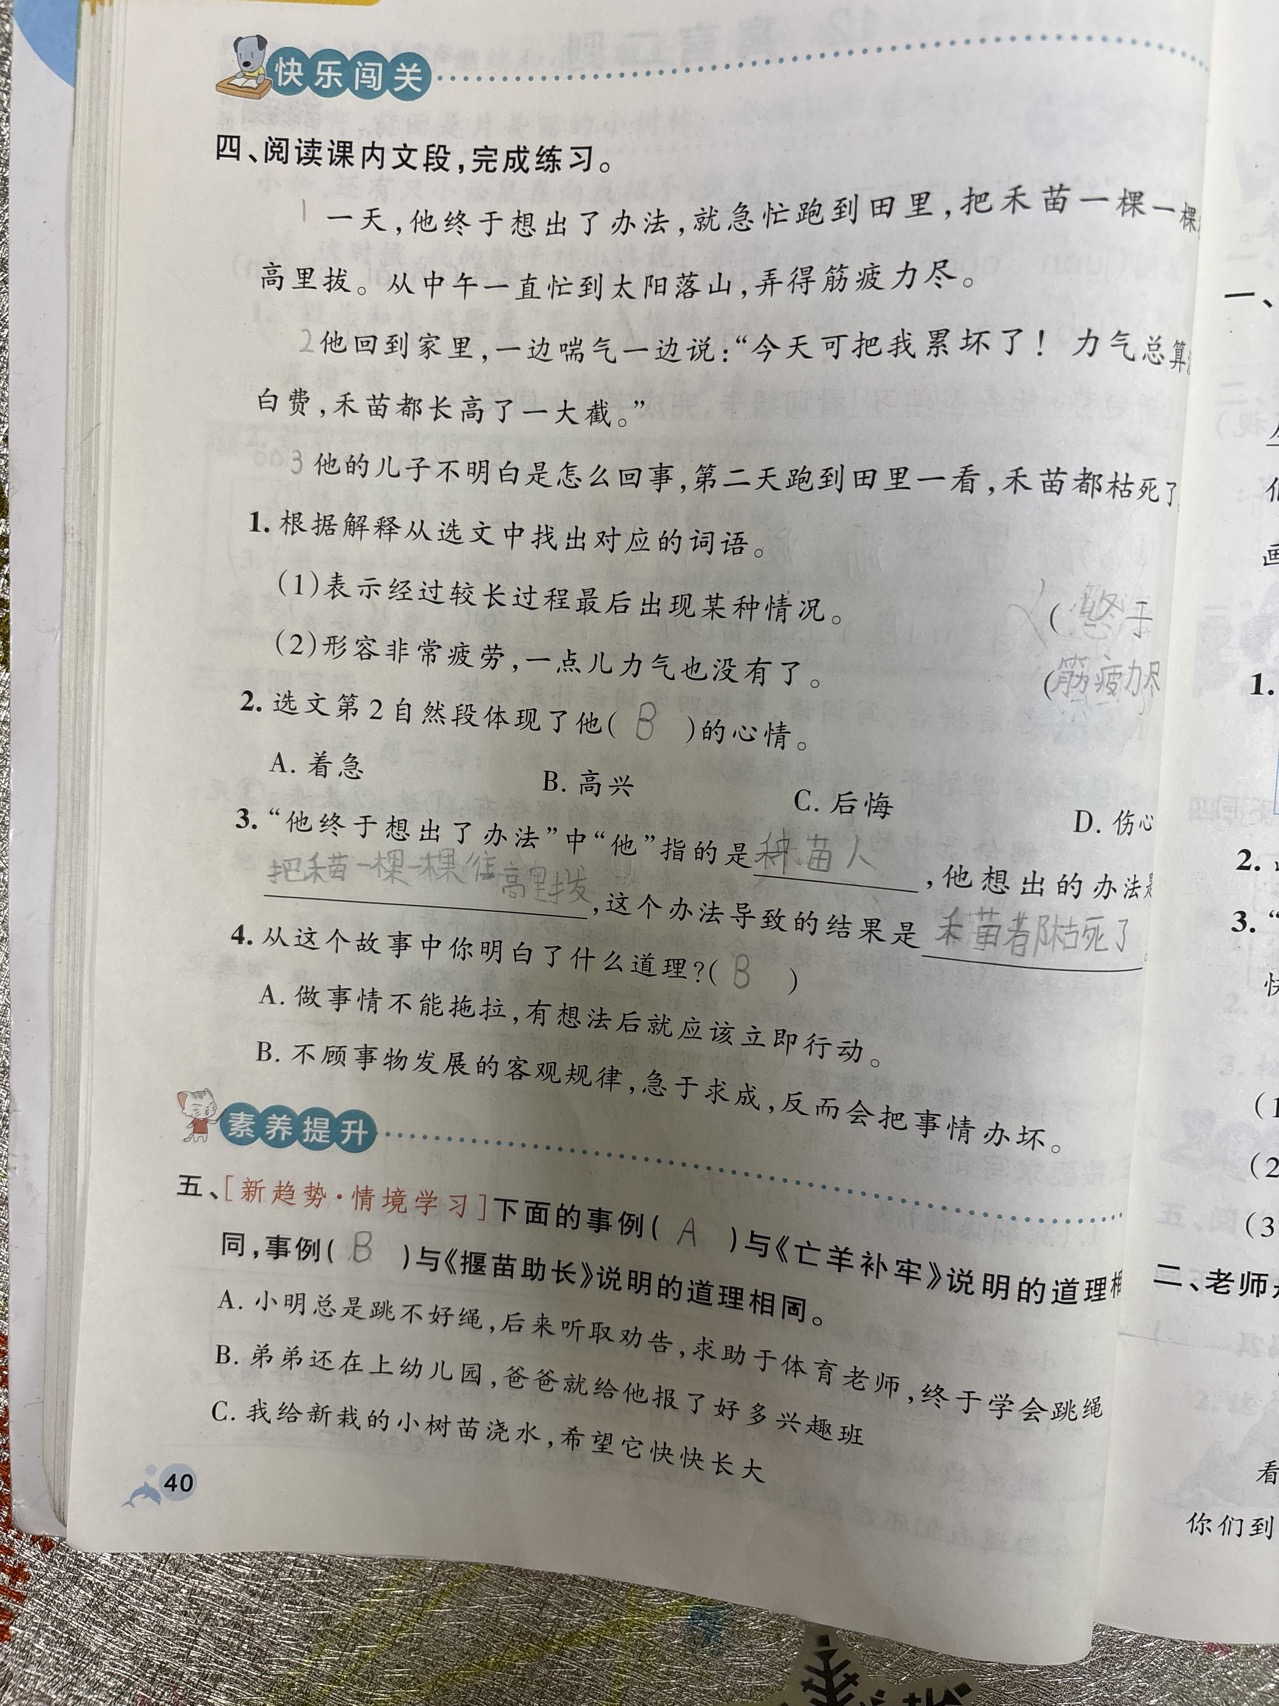 快乐闯关
四、阅读课内文段,完成练习。
1 一天,他终于想出了办法,就急忙跑到田里,把禾苗一棵一棵
高里拔。从中午一直忙到太阳落山,弄得筋疲力尽。
2他回到家里,一边喘气一边说:“今天可把我累坏了! 力气总算
白费,禾苗都长高了一大截。”
3 他的儿子不明白是怎么回事,第二天跑到田里一看,禾苗都枯死了
1. 根据解释从选文中找出对应的词语。
(1)表示经过较长过程最后出现某种情况。 (终于
(2)形容非常疲劳,一点儿力气也没有了。 (筋疲力尽
2. 选文第2自然段体现了他( B )的心情。
A. 着急 B. 高兴 C. 后悔 D. 伤心
3. “他终于想出了办法”中“他”指的是种苗人,他想出的办法是
把禾苗一棵一棵往高里拔,这个办法导致的结果是禾苗都枯死了。
4. 从这个故事中你明白了什么道理?( B )
A. 做事情不能拖拉,有想法后就应该立即行动。
B. 不顾事物发展的客观规律,急于求成,反而会把事情办坏。
素养提升
五、[新趋势·情境学习]下面的事例( A )与《亡羊补牢》说明的道理相
同,事例( B )与《揠苗助长》说明的道理相同。
A. 小明总是跳不好绳,后来听取劝告,求助于体育老师,终于学会跳绳
B. 弟弟还在上幼儿园,爸爸就给他报了好多兴趣班
C. 我给新栽的小树苗浇水,希望它快快长大
40
一、
画
1.
2.
3. “
快
(1
(2
(3
二、老师
看
你们到